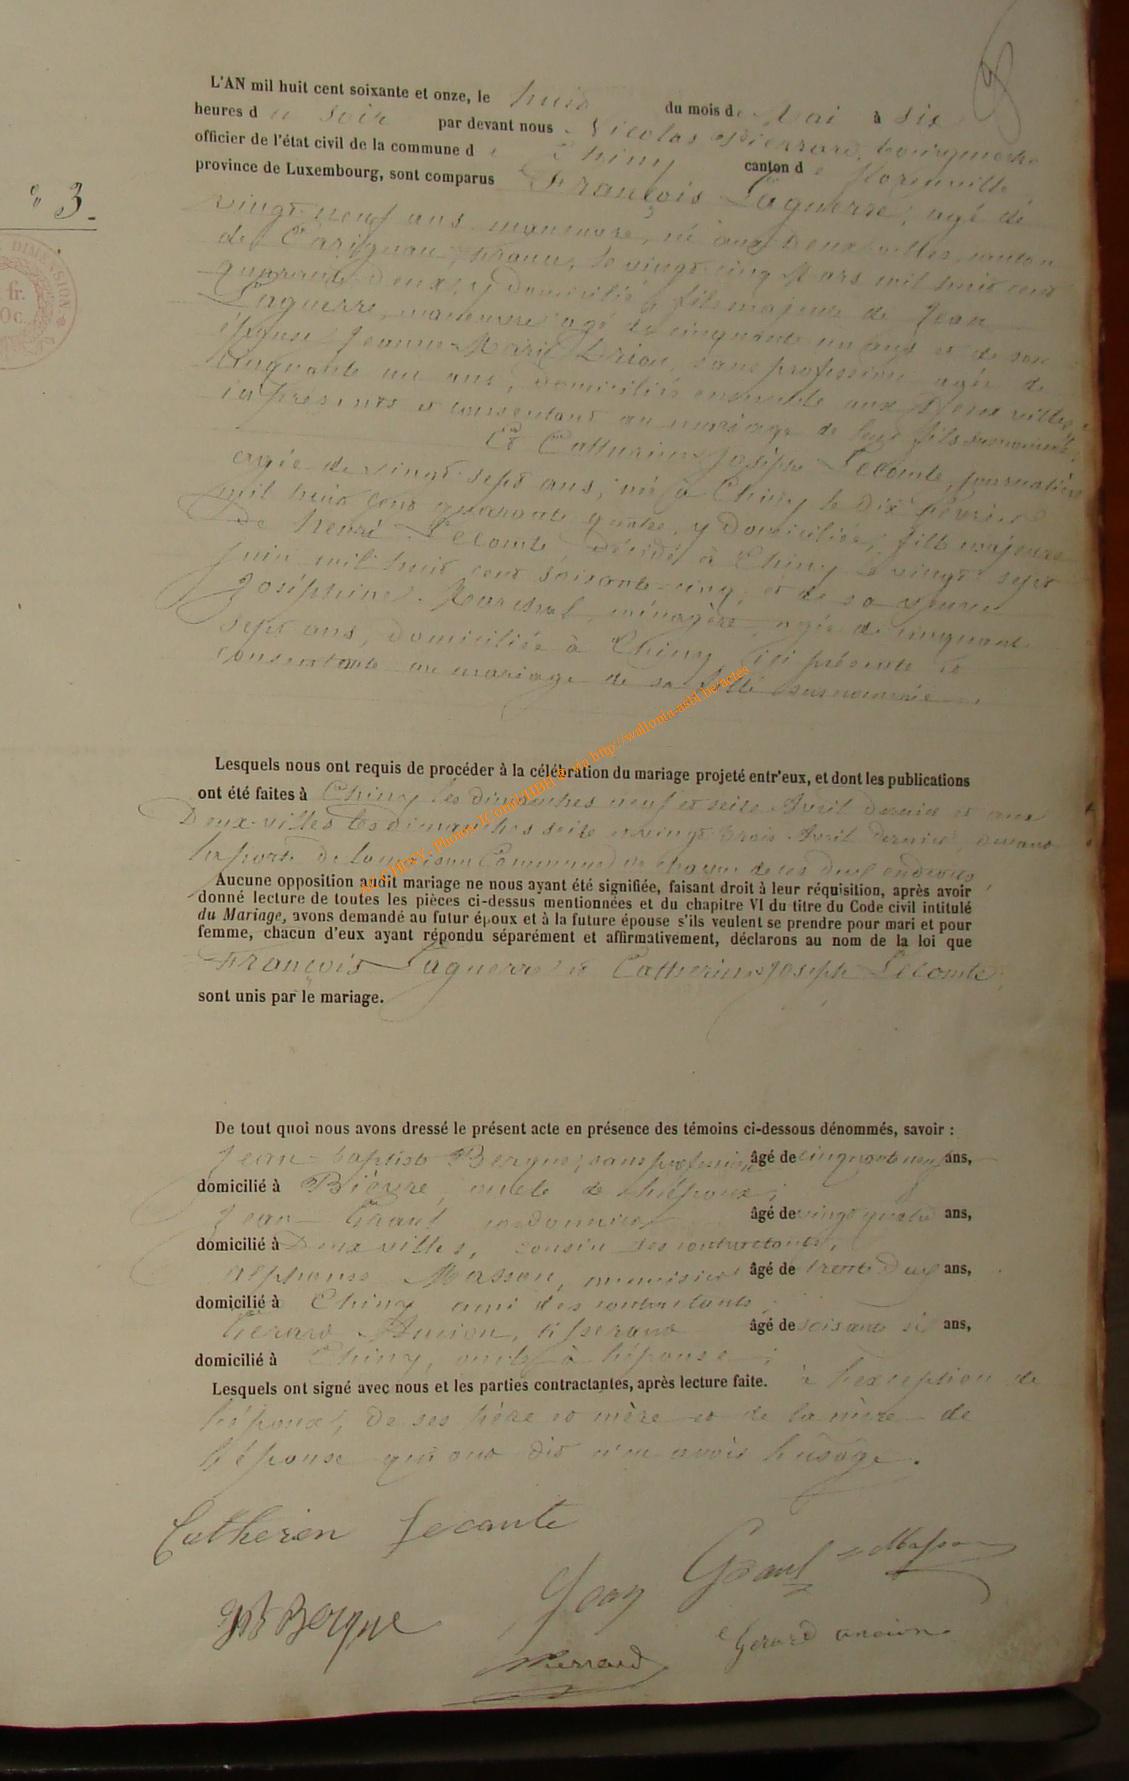 L'AN mil huit cent soixante et onze, le huit du mois de Mai à six
heures du soir par devant nous Nicolas Pierrard, bourgmestre
officier de l'état civil de la commune de Chiny canton de Florenville
province de Luxembourg, sont comparus François Laguerre, agé de
N° 3.
vingt neuf ans, manœuvre, né aux Deux villes, canton
de Carignan, France, le vingt cinq Mars mil huit cent
quarante deux, y domicilié, fils majeur de Jean
Laguerre, manœuvre agé de cinquante un ans et de son
épouse Jeanne-Marie Drion, sans profession, agée de
cinquante un ans, domiciliés ensemble aux Deux villes,
ici présents et consentant au mariage de leur fils susnommé,
Et Catherine Joseph Lecomte, journalière
agée de vingt-sept ans, née à Chiny le dix février
mil huit cent quarante quatre, y domiciliée, fille majeure
de Henri Lecomte, décédé à Chiny le vingt sept
juin mil huit cent soixante-cinq, et de sa veuve
Joséphine Marchal, ménagère, agée de cinquante
sept ans, domiciliée à Chiny, ici présente et
consentante au mariage de sa fille susnommée.
Lesquels nous ont requis de procéder à la célébration du mariage projeté entr'eux, et dont les publications
ont été faites à Chiny les dimanches neuf et seize Avril dernier et aux
Deux-villes les dimanches seize et vingt trois Avril dernier, devant
la porte de la maison Communale de chacun de ces deux endroits
Aucune opposition audit mariage ne nous ayant été signifiée, faisant droit à leur réquisition, après avoir
donné lecture de toutes les pièces ci-dessus mentionnées et du chapitre VI du titre du Code civil intitulé
du Mariage, avons demandé au futur époux et à la future épouse s'ils veulent se prendre pour mari et pour
femme, chacun d'eux ayant répondu séparément et affirmativement, déclarons au nom de la loi que
François Laguerre et Catherine Joseph Lecomte,
sont unis par le mariage.
De tout quoi nous avons dressé le présent acte en présence des témoins ci-dessous dénommés, savoir :
Jean-baptiste Bergue, sans profession âgé de cinquante neuf ans,
domicilié à Bièvre, oncle de l'époux;
Jean Graul cordonnier âgé de vingt quatre ans,
domicilié à Deux villes, cousin des contractants,
Alphonse Masson, menuisier âgé de trente deux ans,
domicilié à Chiny ami des contractants,
Gérard Ancion, tisserand âgé de soixante six ans,
domicilié à Chiny, oncle à l'épouse;
Lesquels ont signé avec nous et les parties contractantes, après lecture faite. à l'exception de
l'époux, de ses père et mère et de la mère de
l'épouse qui ont dit n'en avoir l'usage.
Catherin Lecomte
Jean Graul Masson
JB Bergue
Gerard ancion
Pierrard